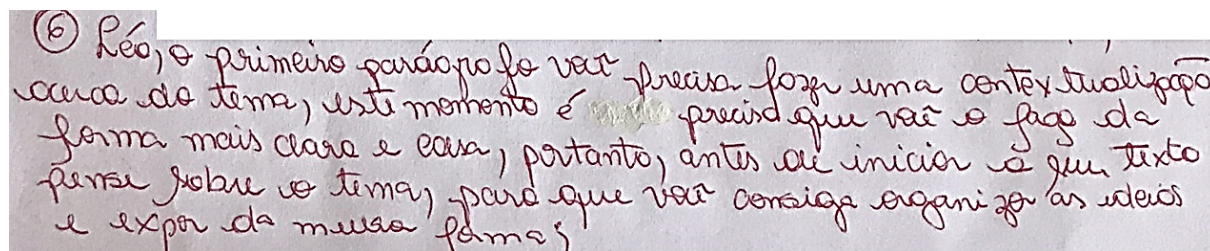 ⑥ Léo, o primeiro parágrafo você precisa fazer uma contextualização
acerca do tema, este momento é preciso que você o faça da
forma mais clara e coesa, portanto, antes de iniciar o seu texto
pense sobre o tema, para que você consiga organizar as ideias
e expor da mesma forma;